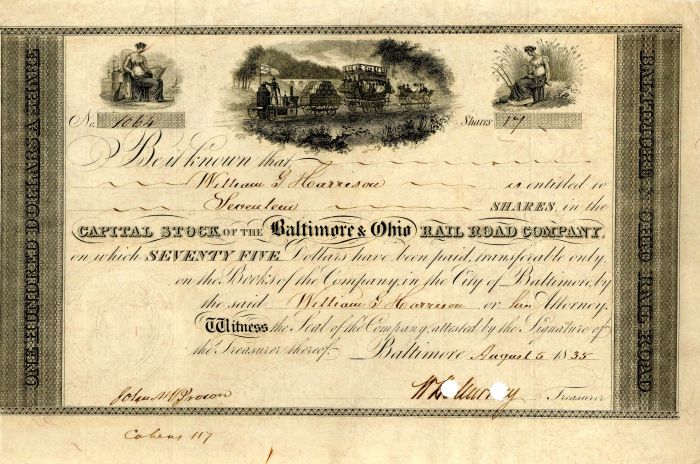 ONE HUNDRED DOLLARS A SHARE
BALTIMORE & OHIO RAIL ROAD
No. 1064
Shares 17
Be it known that
William G Harrison is entitled to
Seventeen SHARES, in the
CAPITAL STOCK OF THE Baltimore & Ohio RAIL ROAD COMPANY,
on which SEVENTY FIVE Dollars have been paid, transferable only
on the Books of the Company, in the City of Baltimore, by
the said William G Harrison or his Attorney.
Witness the Seal of the Company, attested by the Signature of
the Treasurer thereof. Baltimore August 5 1835
John Brown
Treasurer
117